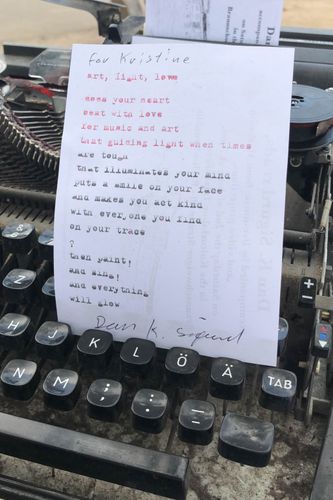 for Kristine
art, light, love
does your heart
beat with love
for music and art
that guiding light when times
are tough
that illuminates your mind
puts a smile on your face
and makes you act kind
with everyone you find
on your trace
?
then paint!
and sing!
and everything
will glow
Dan K. Sigurd
8
U
I
Z
H
J
K
L
Ö
Ä
TAB
N
M
; ,
: .